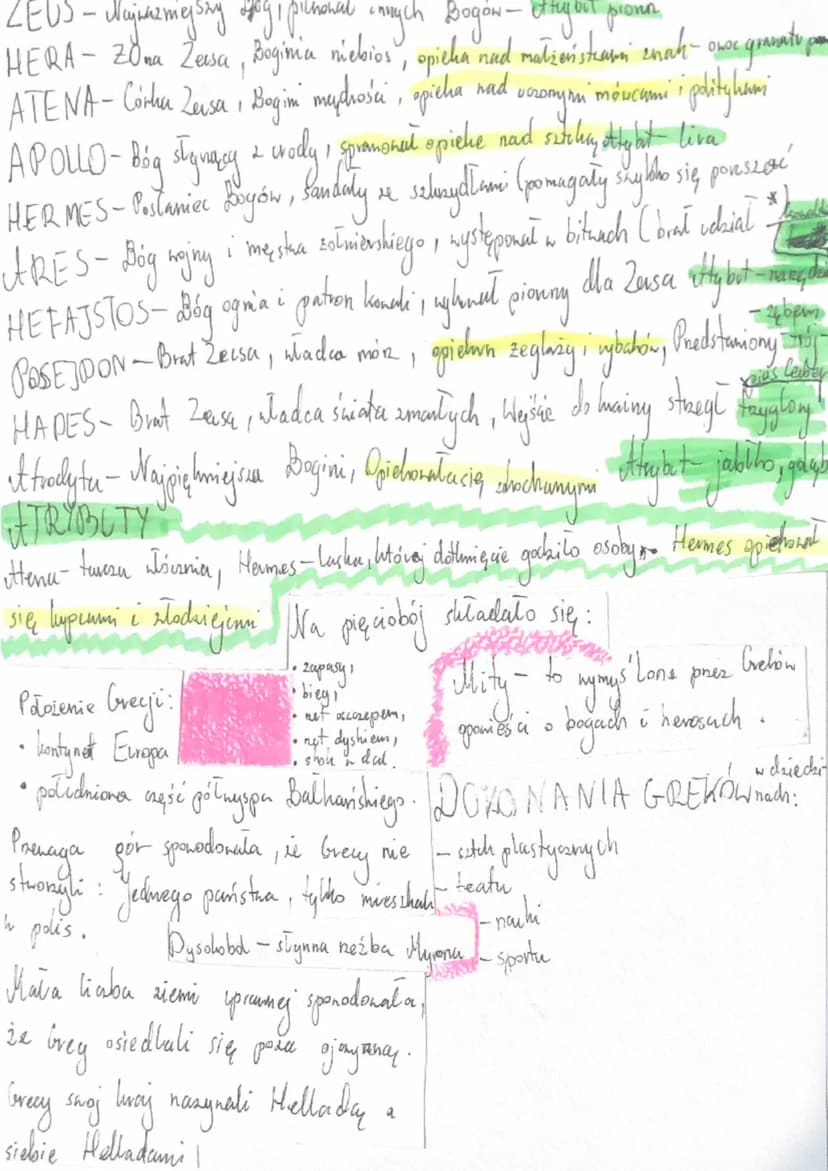 ZEUS – Najważniejszy Bóg, pilnował innych Bogów – Atrybut piorun
HERA – Żona Zeusa, Boginia niebios, opieka nad małżeństwami znak – owoc granatu
ATENA – Córka Zeusa, Bogini mądrości, opieka nad uczonymi mówcami i politykami
APOLLO – Bóg słynący z urody, sprawował opiekę nad sztuką Atrybut – lira
HERMES – Posłaniec Bogów, Sandały ze skrzydłami (pomagały szybko się poruszać
ARES – Bóg wojny i męstwa żołnierskiego, występował w bitwach (brał udział *)
HEFAJSTOS – Bóg ognia i patron kowali, wykuwał pioruny dla Zeusa Atrybut – narzędzia
POSEJDON – Brat Zeusa, władca mórz, opiekun żeglaży i rybaków, Predstawiony trój-
– zębem
HADES – Brat Zeusa, władca świata zmarłych, Wejście do krainy strzegł trzygłowy
pies Cerber
Afrodyta – Najpiękniejsza Bogini, Opiekowała się zakochanymi Atrybut – jabłko, gołąb
ATRYBUTY
Atena – tarcza włócznia, Hermes – Laska, której dotknięcie godziło osoby Hermes opiekował
się kupcami i złodziejami
Na pięciobój składało się:
• zapasy,
• bieg,
• rzut oszczepem,
• rzut dyskiem,
• skok w dal.
Mity – to wymyślone przez Greków
opowieści o bogach i herosach.
Położenie Grecji:
• kontynet Europa
• południowa część półwyspu Bałkańskiego.
Przewaga gór spowodowała, że Grecy nie
stworzyli: jednego państwa, tylko mieszkali
w polis.
Dyskobol – słynna rzeźba Myrona
DOKONANIA GREKÓW w dziedzi-
nach:
– sztuk plastycznych
– teatru
– nauki
– sportu
Mała liczba ziemi uprawnej spowodowała,
że Grecy osiedlali się poza ojczyzną.
Grecy swój kraj nazywali Helladą a
siebie Helladami!